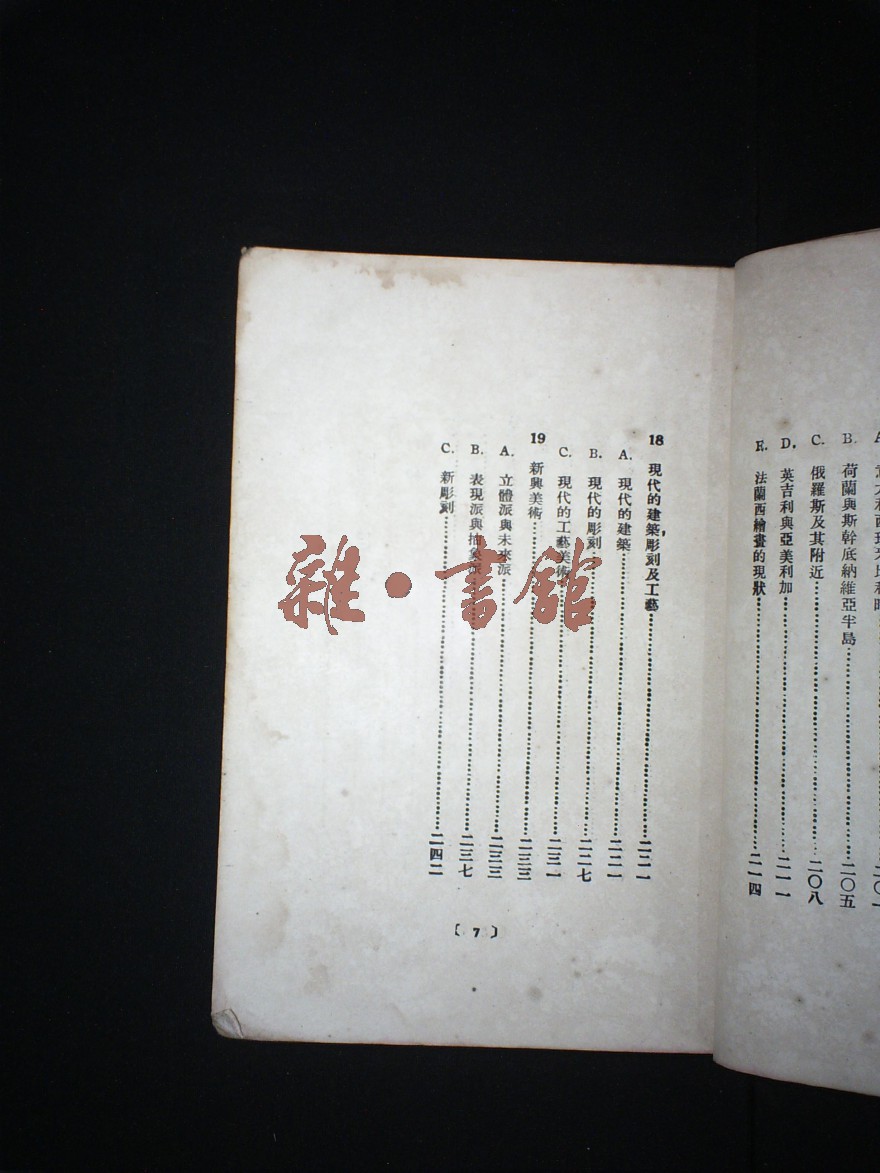 B. 荷蘭與斯幹底納維亞半島……二〇五
C. 俄羅斯及其附近……二〇八
D. 英吉利與亞美利加……二一一
E. 法蘭西繪畫的現狀……二一四
18 現代的建築,彫刻及工藝……二二一
A. 現代的建築……二二一
B. 現代的彫刻……二二七
C. 現代的工藝美術……二三一
19 新興美術……二三三
A. 立體派與未來派……二三三
B. 表現派與抽象派……二三七
C. 新彫刻……二四二
〔7〕
雜·書館